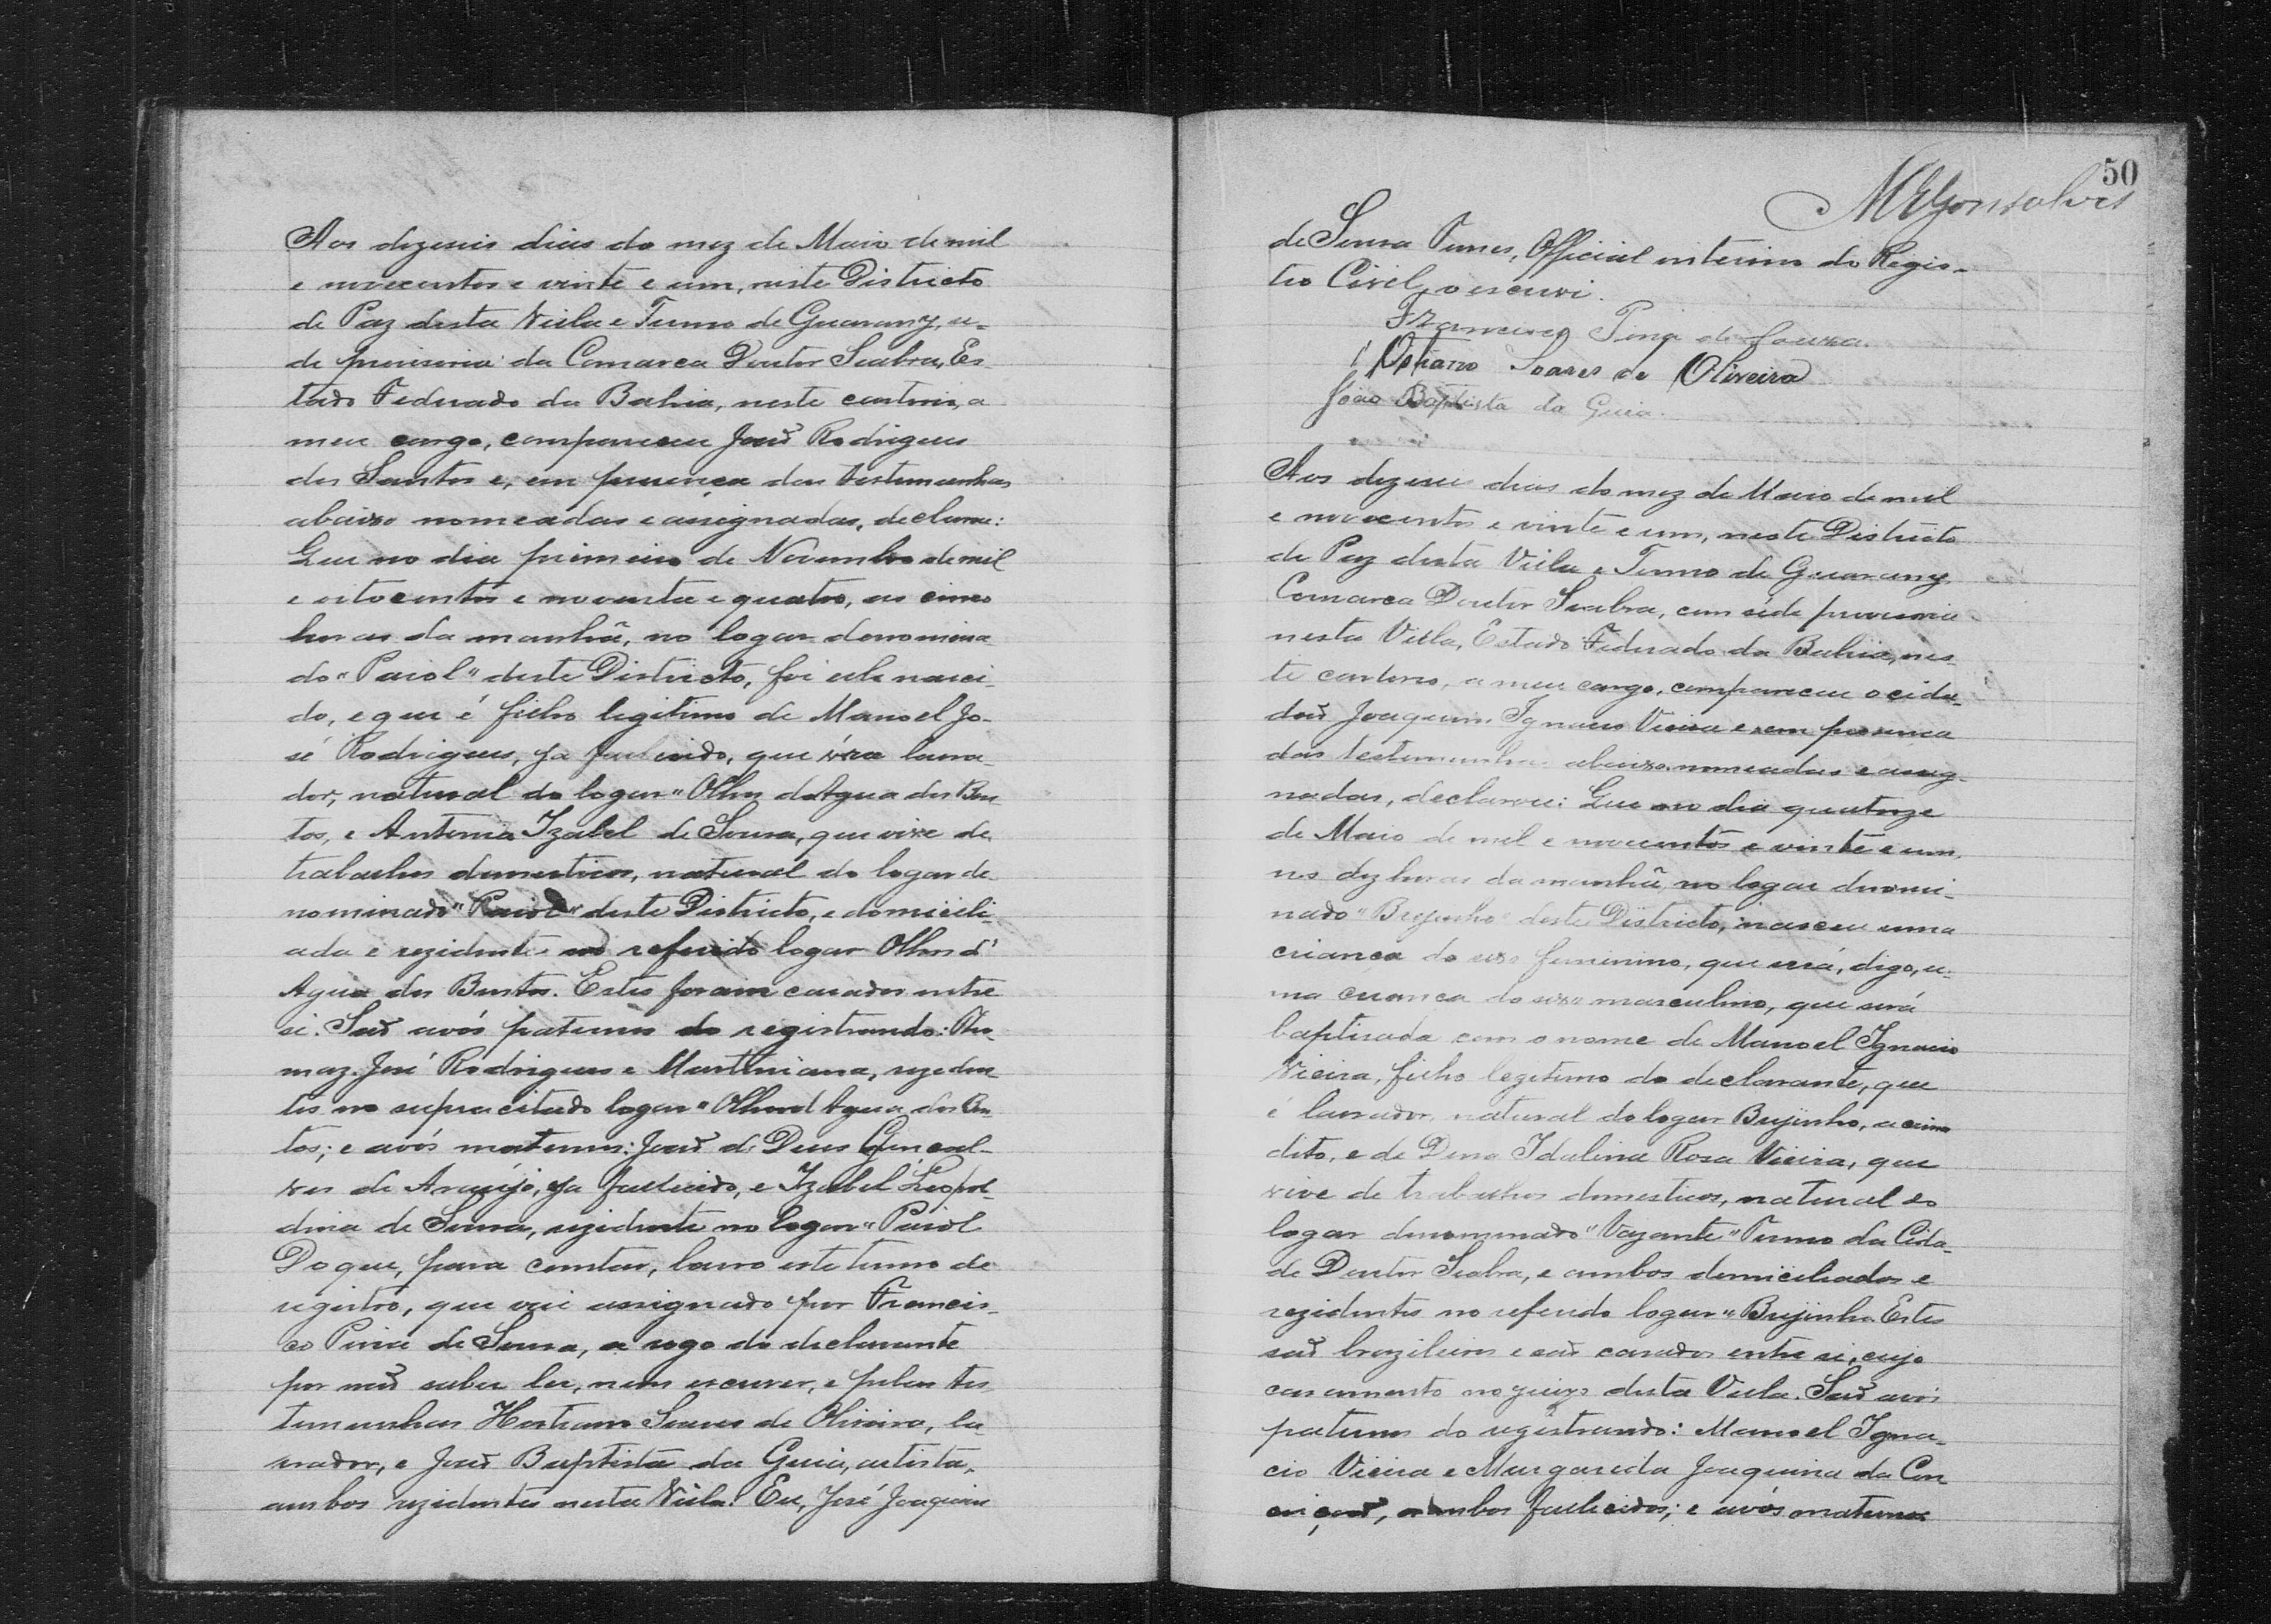 Aos dezeseis dias do mez de Maio de mil
e novecentos e vinte e um, neste Districto
de Paz desta Villa e Termo de Guarany, se-
de provisoria da Comarca Doutor Seabra, Es-
tado Federado da Bahia, neste cartorio, a
meu cargo, compareceu João Rodrigues
dos Santos e, em presença das testemunhas
abaixo nomeadas e assignadas, declarou:
Que no dia primeiro de Novembro de mil
e oitocentos e noventa e quatro, as cinco
horas da manhã, no logar denomina-
do "Paiol" deste Districto, foi elle nasci-
do, e que é filho legitimo de Manoel Jo-
sé Rodrigues, ja fallecido, que éra lavra-
dor, natural do logar "Olhos dAgua dos Ben-
tos, e Antonia Izabel de Sousa, que vive de
trabalhos domesticos, natural do logar de-
nominado "Paiol" deste Districto, e domicili-
ada e rezidente no referido logar Olhos d'
Agua dos Bentos. Estes foram casados entre
si. Saõ avós paternos do registrando:
José Rodrigues e Martiniana, reziden-
tes no supracitado logar "Olhos d Agua dos Ben-
tos; e avós maternos: João de Deus Gonsal-
ves de Araujo, ja fallecido, e Izabel Leopol-
dina de Sousa, rezidente no logar "Paiol
Do que, para constar, lavro este termo de
registro, que vai assignado por Francis-
co Pina de Sousa, a rogo do declarante
por naõ saber ler, nem escrever, e pelas tes-
temunhas Hostiano Soares de Oliveira, la-
vrador, e João Baptista da Guia, artista,
ambos rezidentes nesta Villa. Eu, José Joaquim
50
MEGonsalves
de Sousa Nunes, Official interino do Regis-
tro Civil, o escrevi.
Francisco Pina de Souza.
Ostiano Soares de Oliveira
João Baptista da Guia.
Aos dezeseis dias do mez de Maio de mil
e novecentos e vinte e um, neste Districto
de Paz desta Villa e Termo de Guarany
Comarca Doutor Seabra, com séde provisoria
nesta Villa, Estado Federado da Bahia, nes-
te cartorio, a meu cargo, compareceu o cida-
daõ Joaquim Ignacio Vieira e em presença
das testemunhas abaixo nomeadas e assig-
nadas, declarou: Que no dia quatorze
de Maio de mil e novecentos e vinte e um,
as dez horas da manhã, no logar denomi-
nado "Brejinho" deste Districto, nasceu uma
criança do sexo femenino, que será, digo, u-
ma criança do sexo masculino, que será
baptisada com o nome de Manoel Ignacio
Vieira, filho legitimo do declarante, que
é lavrador, natural do logar Brejinho, acima
dito, e de Dona Idalina Rosa Vieira, que
vive de trabalhos domesticos, natural do
logar denominado "Vazante" Termo da Cida-
de Doutor Seabra, e ambos domiciliados e
rezidentes no referido logar "Brejinho. Estes
saõ brazileiros e saõ casados entre si, cujo
casamento no juizo desta Villa. Saõ avós
paternos do registrando: Manoel Igna-
cio Vieira e Margarida Joaquina da Con-
ceiçaõ, ambos fallecidos; e avós maternos